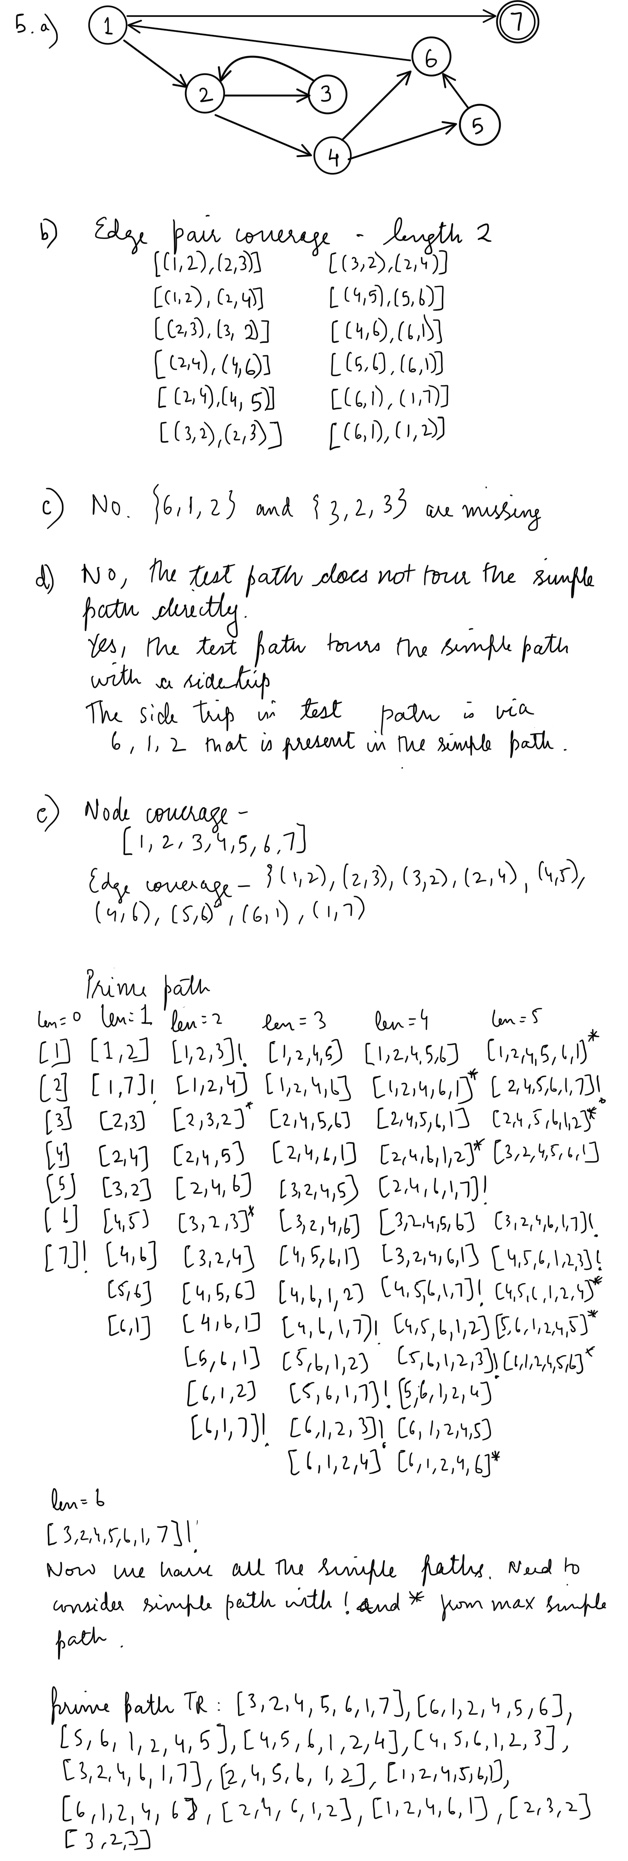 5. a)
1
7
2
3
6
5
4
b) Edge pair coverage - length 2
[(1,2),(2,3)] [(3,2),(2,4)]
[(1,2),(2,4)] [(4,5),(5,6)]
[(2,3),(3,2)] [(4,6),(6,1)]
[(2,4),(4,6)] [(5,6),(6,1)]
[(2,4),(4,5)] [(6,1),(1,7)]
[(3,2),(2,3)] [(6,1),(1,2)]
c) No. {6,1,2} and {3,2,3} are missing
d) No, the test path does not tour the simple
path directly.
Yes, the test path tours the simple path
with a sidetrip
The side trip in test path is via
6, 1, 2 that is present in the simple path.
e) Node coverage -
[1, 2, 3, 4, 5, 6, 7]
Edge coverage - {(1,2), (2,3), (3,2), (2,4), (4,5),
(4,6), (5,6), (6,1), (1,7)
Prime path
len=0 len=1 len=2 len=3 len=4 len=5
[1] [1,2] [1,2,3]! [1,2,4,5] [1,2,4,5,6] [1,2,4,5,6,1]*
[2] [1,7]! [1,2,4] [1,2,4,6] [1,2,4,6,1]* [2,4,5,6,1,7]!
[3] [2,3] [2,3,2]* [2,4,5,6] [2,4,5,6,1] [2,4,5,6,1,2]*
[4] [2,4] [2,4,5] [2,4,6,1] [2,4,6,1,2]* [3,2,4,5,6,1]
[5] [3,2] [2,4,6] [3,2,4,5) [2,4,6,1,7]!
[6] [4,5) [3,2,3]* [3,2,4,6] [3,2,4,5,6] [3,2,4,6,1,7]!
[7]! [4,6] [3,2,4] [4,5,6,1] [3,2,4,6,1] [4,5,6,1,2,3]!
[5,6] [4,5,6] [4,6,1,2) [4,5,6,1,7]! [4,5,6,1,2,4]*
[6,1] [4,6,1] [4,6,1,7]! [4,5,6,1,2] [5,6,1,2,4,5]*
[5,6,1] [5,6,1,2) [5,6,1,2,3]! [6,1,2,4,5,6]*
[6,1,2] [5,6,1,7]! [5,6,1,2,4]
[6,1,7]! [6,1,2,3]! [6,1,2,4,5)
[6,1,2,4] [6,1,2,4,6]*
len=6
[3,2,4,5,6,1,7]!
Now we have all the simple paths. Need to
consider simple path with ! and * from max simple
path.
prime path TR: [3,2,4,5,6,1,7], [6,1,2,4,5,6],
[5,6,1,2,4,5], [4,5,6,1,2,4], [4,5,6,1,2,3],
[3,2,4,6,1,7], [2,4,5,6,1,2], [1,2,4,5,6,1],
[6,1,2,4,6], [2,4,6,1,2], [1,2,4,6,1], [2,3,2]
[3,2,3]]